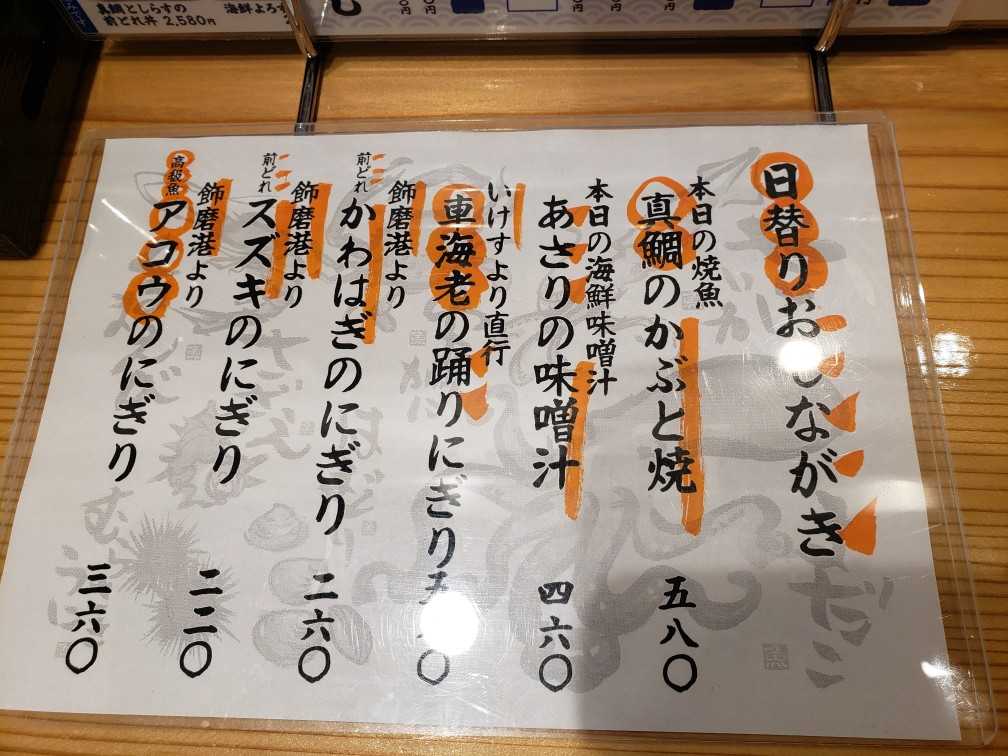 真鯛としらすの
前どれ丼 2,580円
日替りおしながき
本日の焼魚
真鯛のかぶと焼
五八〇
本日の海鮮味噌汁
あさりの味噌汁
四六〇
いけすより直行
車海老の踊りにぎり
飾磨港より
前どれ
かわはぎのにぎり
二六〇
飾磨港より
前どれ
スズキのにぎり
二二〇
飾磨港より
高級魚
アコウのにぎり
三六〇